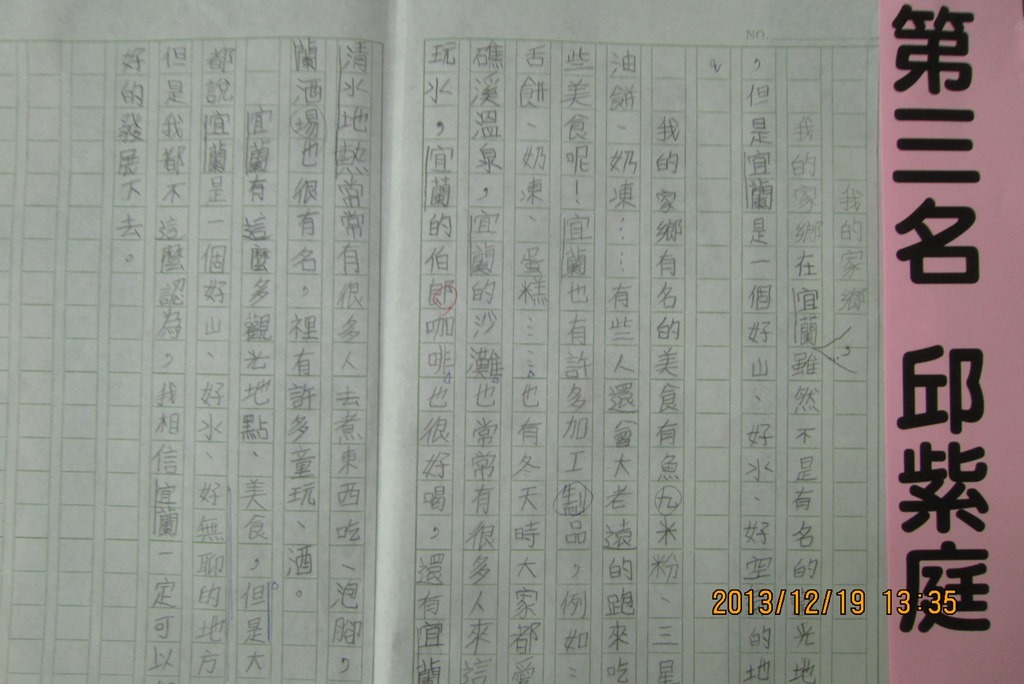 第三名 邱紫庭
NO.
我的家鄉
我的家鄉在宜蘭,雖然不是有名的光地
,但是宜蘭是一個好山、好水、好空的地
我的家鄉有名的美食有魚丸米粉、三星
油餅、奶凍……有些人還會大老遠的跑來吃
些美食呢!宜蘭也有許多加工製品,例如:
舌餅、奶凍、蛋糕……也有冬天時大家都愛
礁溪溫泉,宜蘭的沙灘也常常有很多人來這
玩水,宜蘭的伯郎咖啡也很好喝,還有宜蘭
清水地熱常常有很多人去煮東西吃、泡腳,
蘭酒場也很有名,裡有許多童玩、酒。
宜蘭有這麼多觀光地點、美食,但是大
都說宜蘭是一個好山、好水、好無聊的地方
但是我都不這麼認為,我相信宜蘭一定可以
好的發展下去。
2013/12/19 13:35